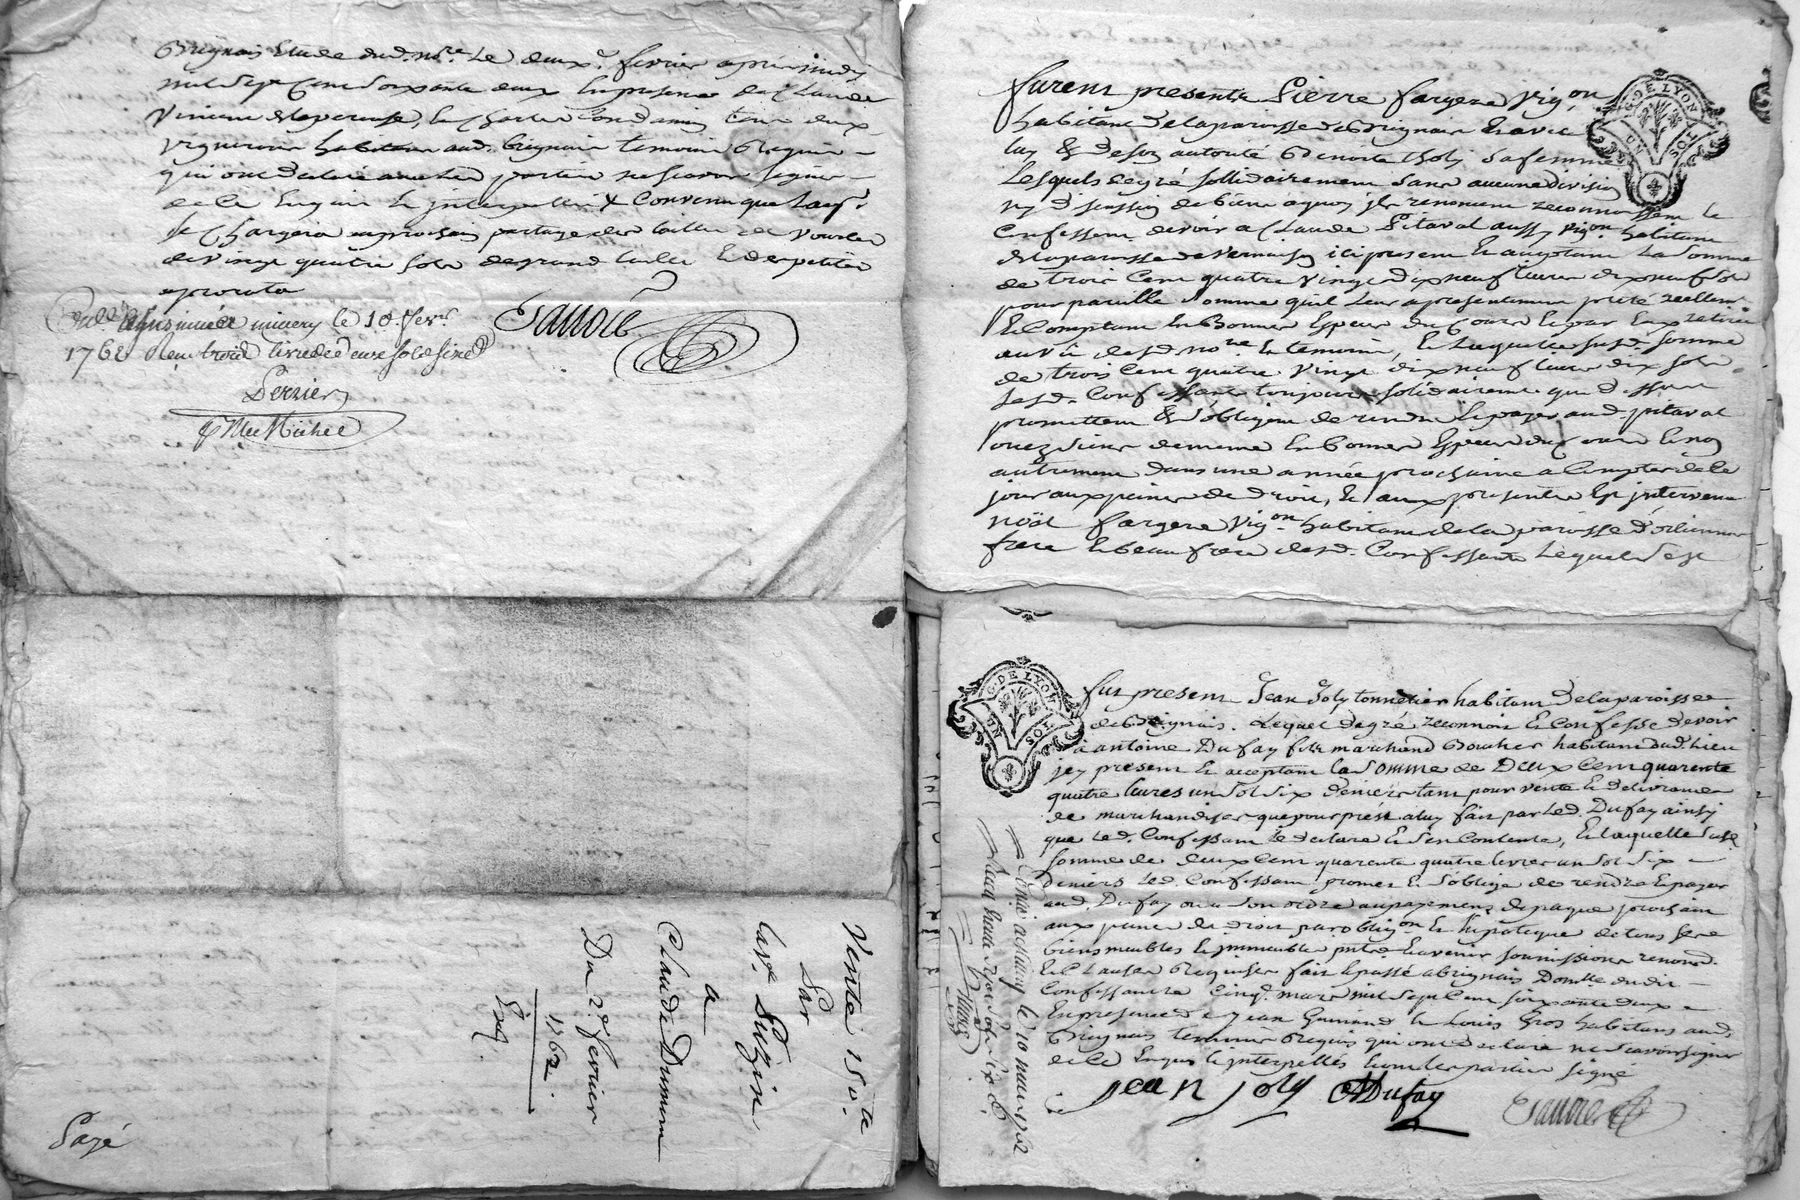 Brignais Etude dud. nore. Le deuxe. fevrier apres midy
mil Sept Cent Soixante deux En presence de Claude
Vincent et Charles
vignerons habitans aud. brignais temoins Requis
qui ont declaré avec les parties ne scavoir signer
de Ce Enquis et interpellés & Convenu que Lacqr.
Se Chargera au prochain partage des tailles de Vourles
de vingt quatre Sols de grand taille Et des petites
aprorata
insinué a millery le 10 fevrr.
1762 Reçu trois livres sols six d
Perrier
Gandré
Vente 150.te
Par
Lave. Puzin
a
Claude Dumon
Du 2e. fevrier
1762.
Exp.
Payé
furent presents Pierre fargere Vigon
habitant de la paroisse de Brignais Et avec
luy & de son autorité Benoite Joly Sa femme
Lesquels de gré sollidairement Sans aucune division
ny discussion de biens aquoy ils renoncent reconnoissent Et
Confessent devoir a Claude Pitaval aussy Vigon. habitant
de la paroisse de Vernaison ici present Et acceptant La Somme
de trois Cent quatre Vingt dix neuf livres dix neuf Sols
pour pareille Somme quil Leur a presentement preté reellemt.
Et Comptant En Bonnes Especes du Cours Et par Eux retirée
au vû desd. nore. Et temoins, Et Laquelle susd. Somme
de trois Cent quatre Vingt dix neuf livres dix sols
Lesd. Confessants toujours solidairement que dessus
promettent & s'obligent de rendre Et payer aud. pitaval
ou aux siens de meme En bonnes Especes du Cours Et non
autrement dans une année prochaine a Compter de Ce
jour aux peines de droit, Et aux presentes Est intervenu
nöel fargere Vigon habitant de la paroisse d'orlienas
frere Et beau frere desd. Confessants Lequel S'est
G. DE LYON
UN SOL
G. DE LYON
UN SOL
fut present Jean Joly tonnelier habitant de la paroisse
de Brignais. Lequel de gré reconnoit Et Confesse devoir
à antoine Dufay fils marchand Boucher habitant dud. Lieu
icy present Et acceptant la Somme de Deux Cent quarente
quatre livres un Sol Six deniers tant pour vente Et delivrance
de marchandises que pour prest a luy fait par Led. Dufay ainsy
que Led. Confessant Le declare Et s'en Contente, Et laquelle susd.
somme de deux Cent quarente quatre livres un Sol Six
Deniers Led. Confessant promet Et S'oblige de rendre Et payer
aud. Dufay ou a Son ordre au payement de paques prochain
aux peines de droit par obligon. Et hipoteque de tous ses
biens meubles Et immeubles pnts. Et avenir soumissions renond.
Et Clauses Requises fait Et passé a brignais Domlle. dudit
Confessant Le Cinq. mars mil Sept Cent soixante deux
En presence de jean Guinand Et Louis Gros habitans aud.
Brignais temoins Requis qui ont declaré ne Scavoir signer
de Ce Enquis Et interpellés Et ont les parties signé
jean joly ADufay Gandré
Controlé a millery le 10 mars 1762